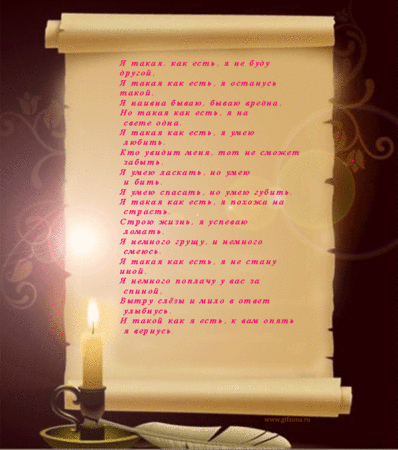 Я такая, как есть, я не буду
другой,
Я такая как есть, я останусь
такой.
Я наивна бываю, бываю вредна,
Но такая как есть, я на
свете одна.
Я такая как есть, я умею
любить.
Кто увидит меня, тот не сможет
забыть.
Я умею ласкать, но умею
и бить.
Я умею спасать, но умею губить.
Я такая как есть, я похожа на
страсть.
Строю жизнь, я успеваю
ломать.
Я немного грущу, и немного
смеюсь.
Я такая как есть, я не стану
иной.
Я немного поплачу у вас за
спиной,
Вытру слёзы и мило в ответ
улыбнусь.
И такой как я есть, к вам опять
я вернусь